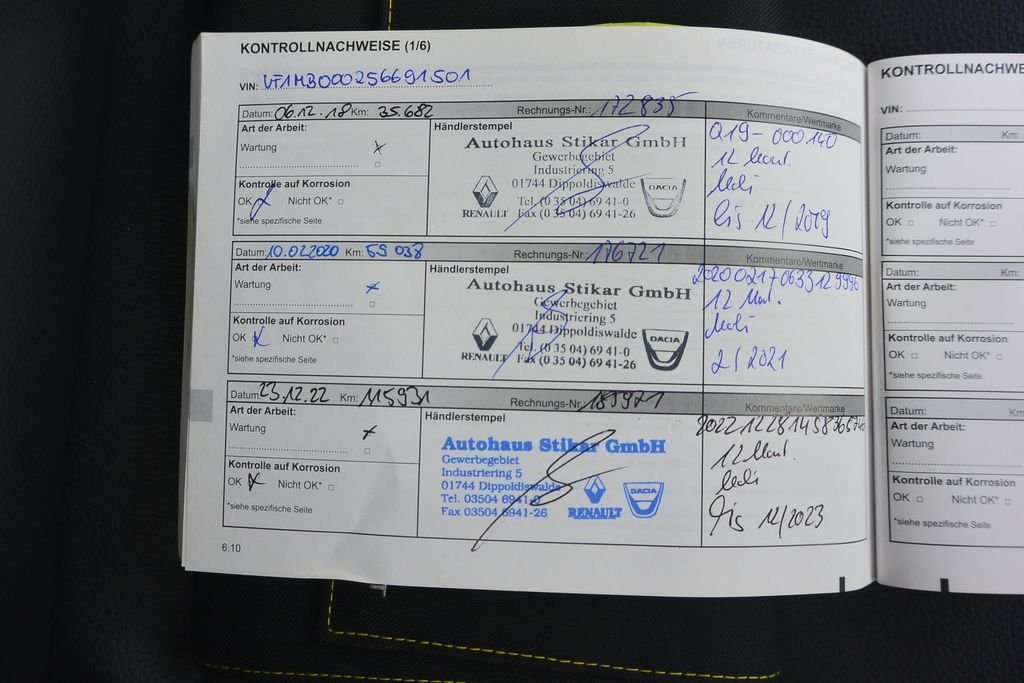 KONTROLLNACHWEISE (1/6)
VIN: VF1MB000256691501
Datum: 06.12.18 Km: 35.682 Rechnungs-Nr.: 172835 Kommentare/Wertmarke
Art der Arbeit: Händlerstempel
Wartung
Kontrolle auf Korrosion
OK Nicht OK*
*siehe spezifische Seite
Autohaus Stikar GmbH
Gewerbegebiet
Industriering 5
01744 Dippoldiswalde
Tel. (0 35 04) 69 41-0
Fax (0 35 04) 69 41-26
RENAULT
DACIA
Q19-000140
12 Monat.
bis 12/2019
Datum: 10.02.2020 Km: 59 038 Rechnungs-Nr.: 176721 Kommentare/Wertmarke
Art der Arbeit: Händlerstempel
Wartung
Kontrolle auf Korrosion
OK Nicht OK*
*siehe spezifische Seite
Autohaus Stikar GmbH
Gewerbegebiet
Industriering 5
01744 Dippoldiswalde
Tel. (0 35 04) 69 41-0
Fax (0 35 04) 69 41-26
RENAULT
DACIA
20200217063312 9996
12 Mon.
2/2021
Datum: 23.12.22 Km: 115931 Rechnungs-Nr.: Kommentare/Wertmarke
Art der Arbeit: Händlerstempel
Wartung
Kontrolle auf Korrosion
OK Nicht OK*
*siehe spezifische Seite
Autohaus Stikar GmbH
Gewerbegebiet
Industriering 5
01744 Dippoldiswalde
Tel. 03504 6941-0
Fax 03504 6941-26
RENAULT
DACIA
12 Monat.
bis 12/2023
6.10
KONTROLLNACHWE
VIN:
Datum: Km:
Art der Arbeit:
Wartung
Kontrolle auf Korrosion
OK Nicht OK*
*siehe spezifische Seite
Datum: Km:
Art der Arbeit:
Wartung
Kontrolle auf Korrosion
OK Nicht OK*
*siehe spezifische Seite
Datum: Km
Art der Arbeit:
Wartung
Kontrolle auf Korrosion
OK Nicht OK*
*siehe spezifische Seite